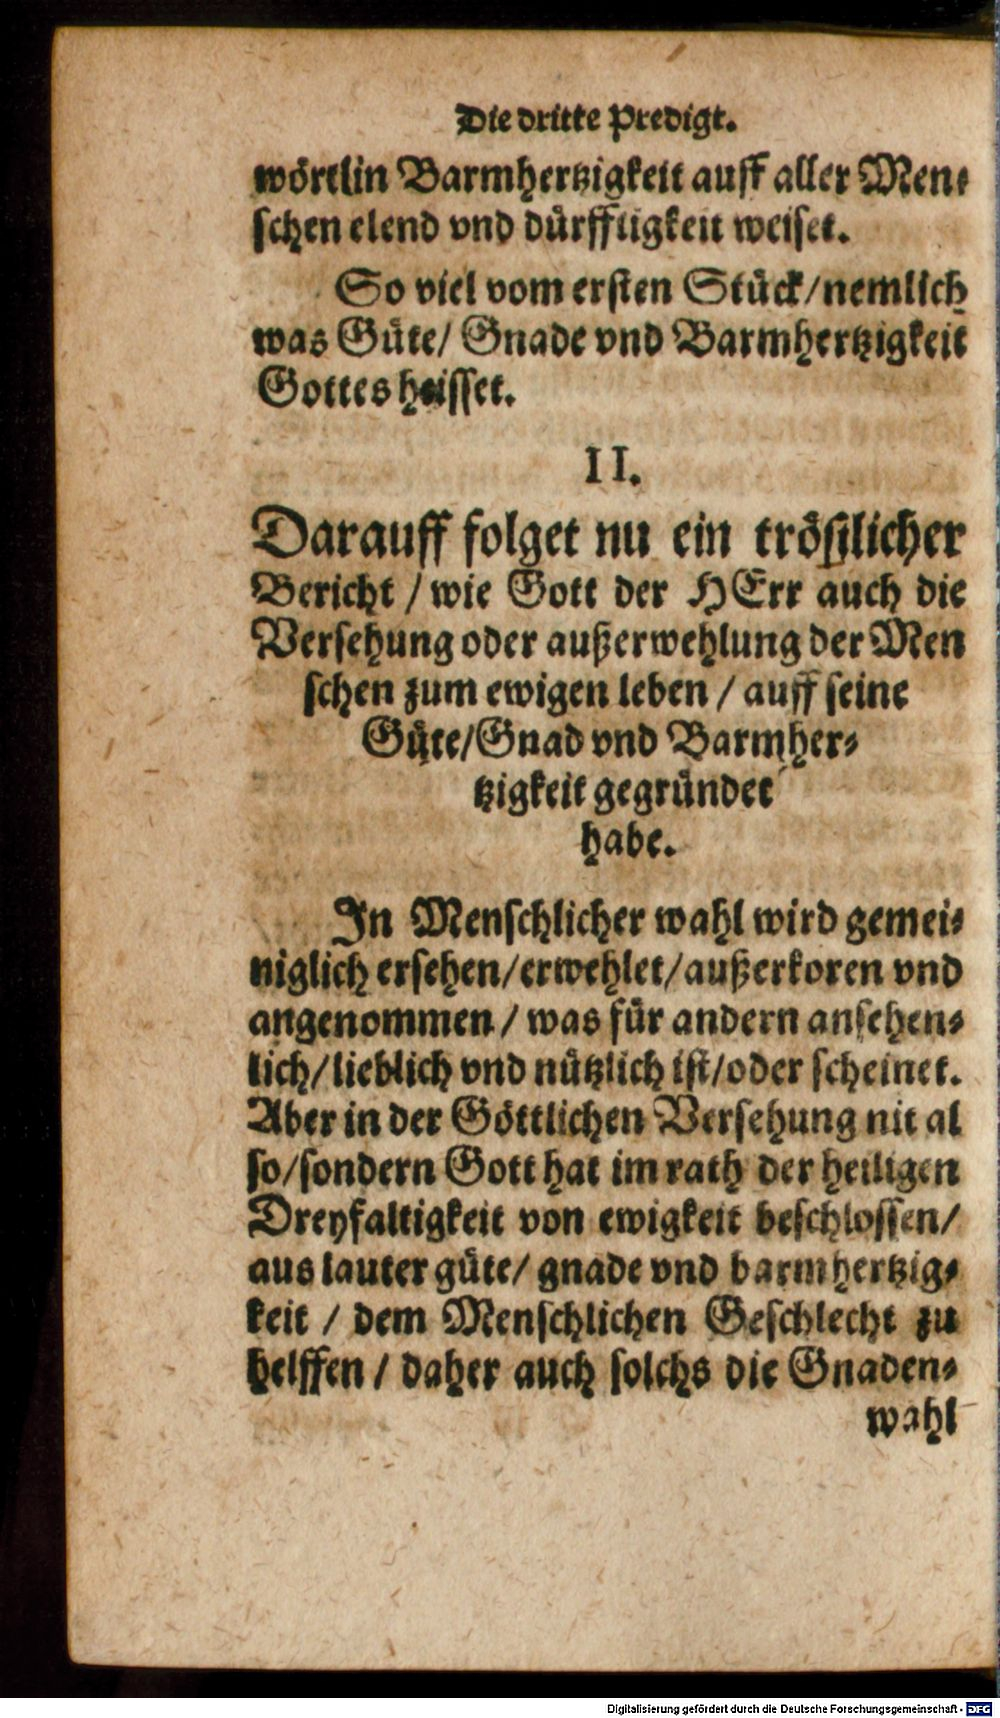 Die dritte Predigt.
wörtlin Barmhertzigkeit auff aller Men-
schen elend vnd dürfftigkeit weiset.
So viel vom ersten Stück/nemlich
was Güte/ Gnade vnd Barmhertzigkeit
Gottes heisset.
II.
Darauff folget nu ein tröstlicher
Bericht / wie Gott der HErr auch die
Versehung oder außerwehlung der Men
schen zum ewigen leben / auff seine
Güte/Gnad vnd Barmher-
tzigkeit gegründet
habe.
In Menschlicher wahl wird gemei-
niglich ersehen/erwehlet/außerkoren vnd
angenommen / was für andern ansehen-
lich/lieblich vnd nützlich ist/oder scheinet.
Aber in der Göttlichen Versehung nit al
so/sondern Gott hat im rath der heiligen
Dreyfaltigkeit von ewigkeit beschlossen/
aus lauter güte/ gnade vnd barmhertzig-
keit / dem Menschlichen Geschlecht zu
helffen / daher auch solchs die Gnaden-
wahl
Digitalisierung gefördert durch die Deutsche Forschungsgemeinschaft - DFG